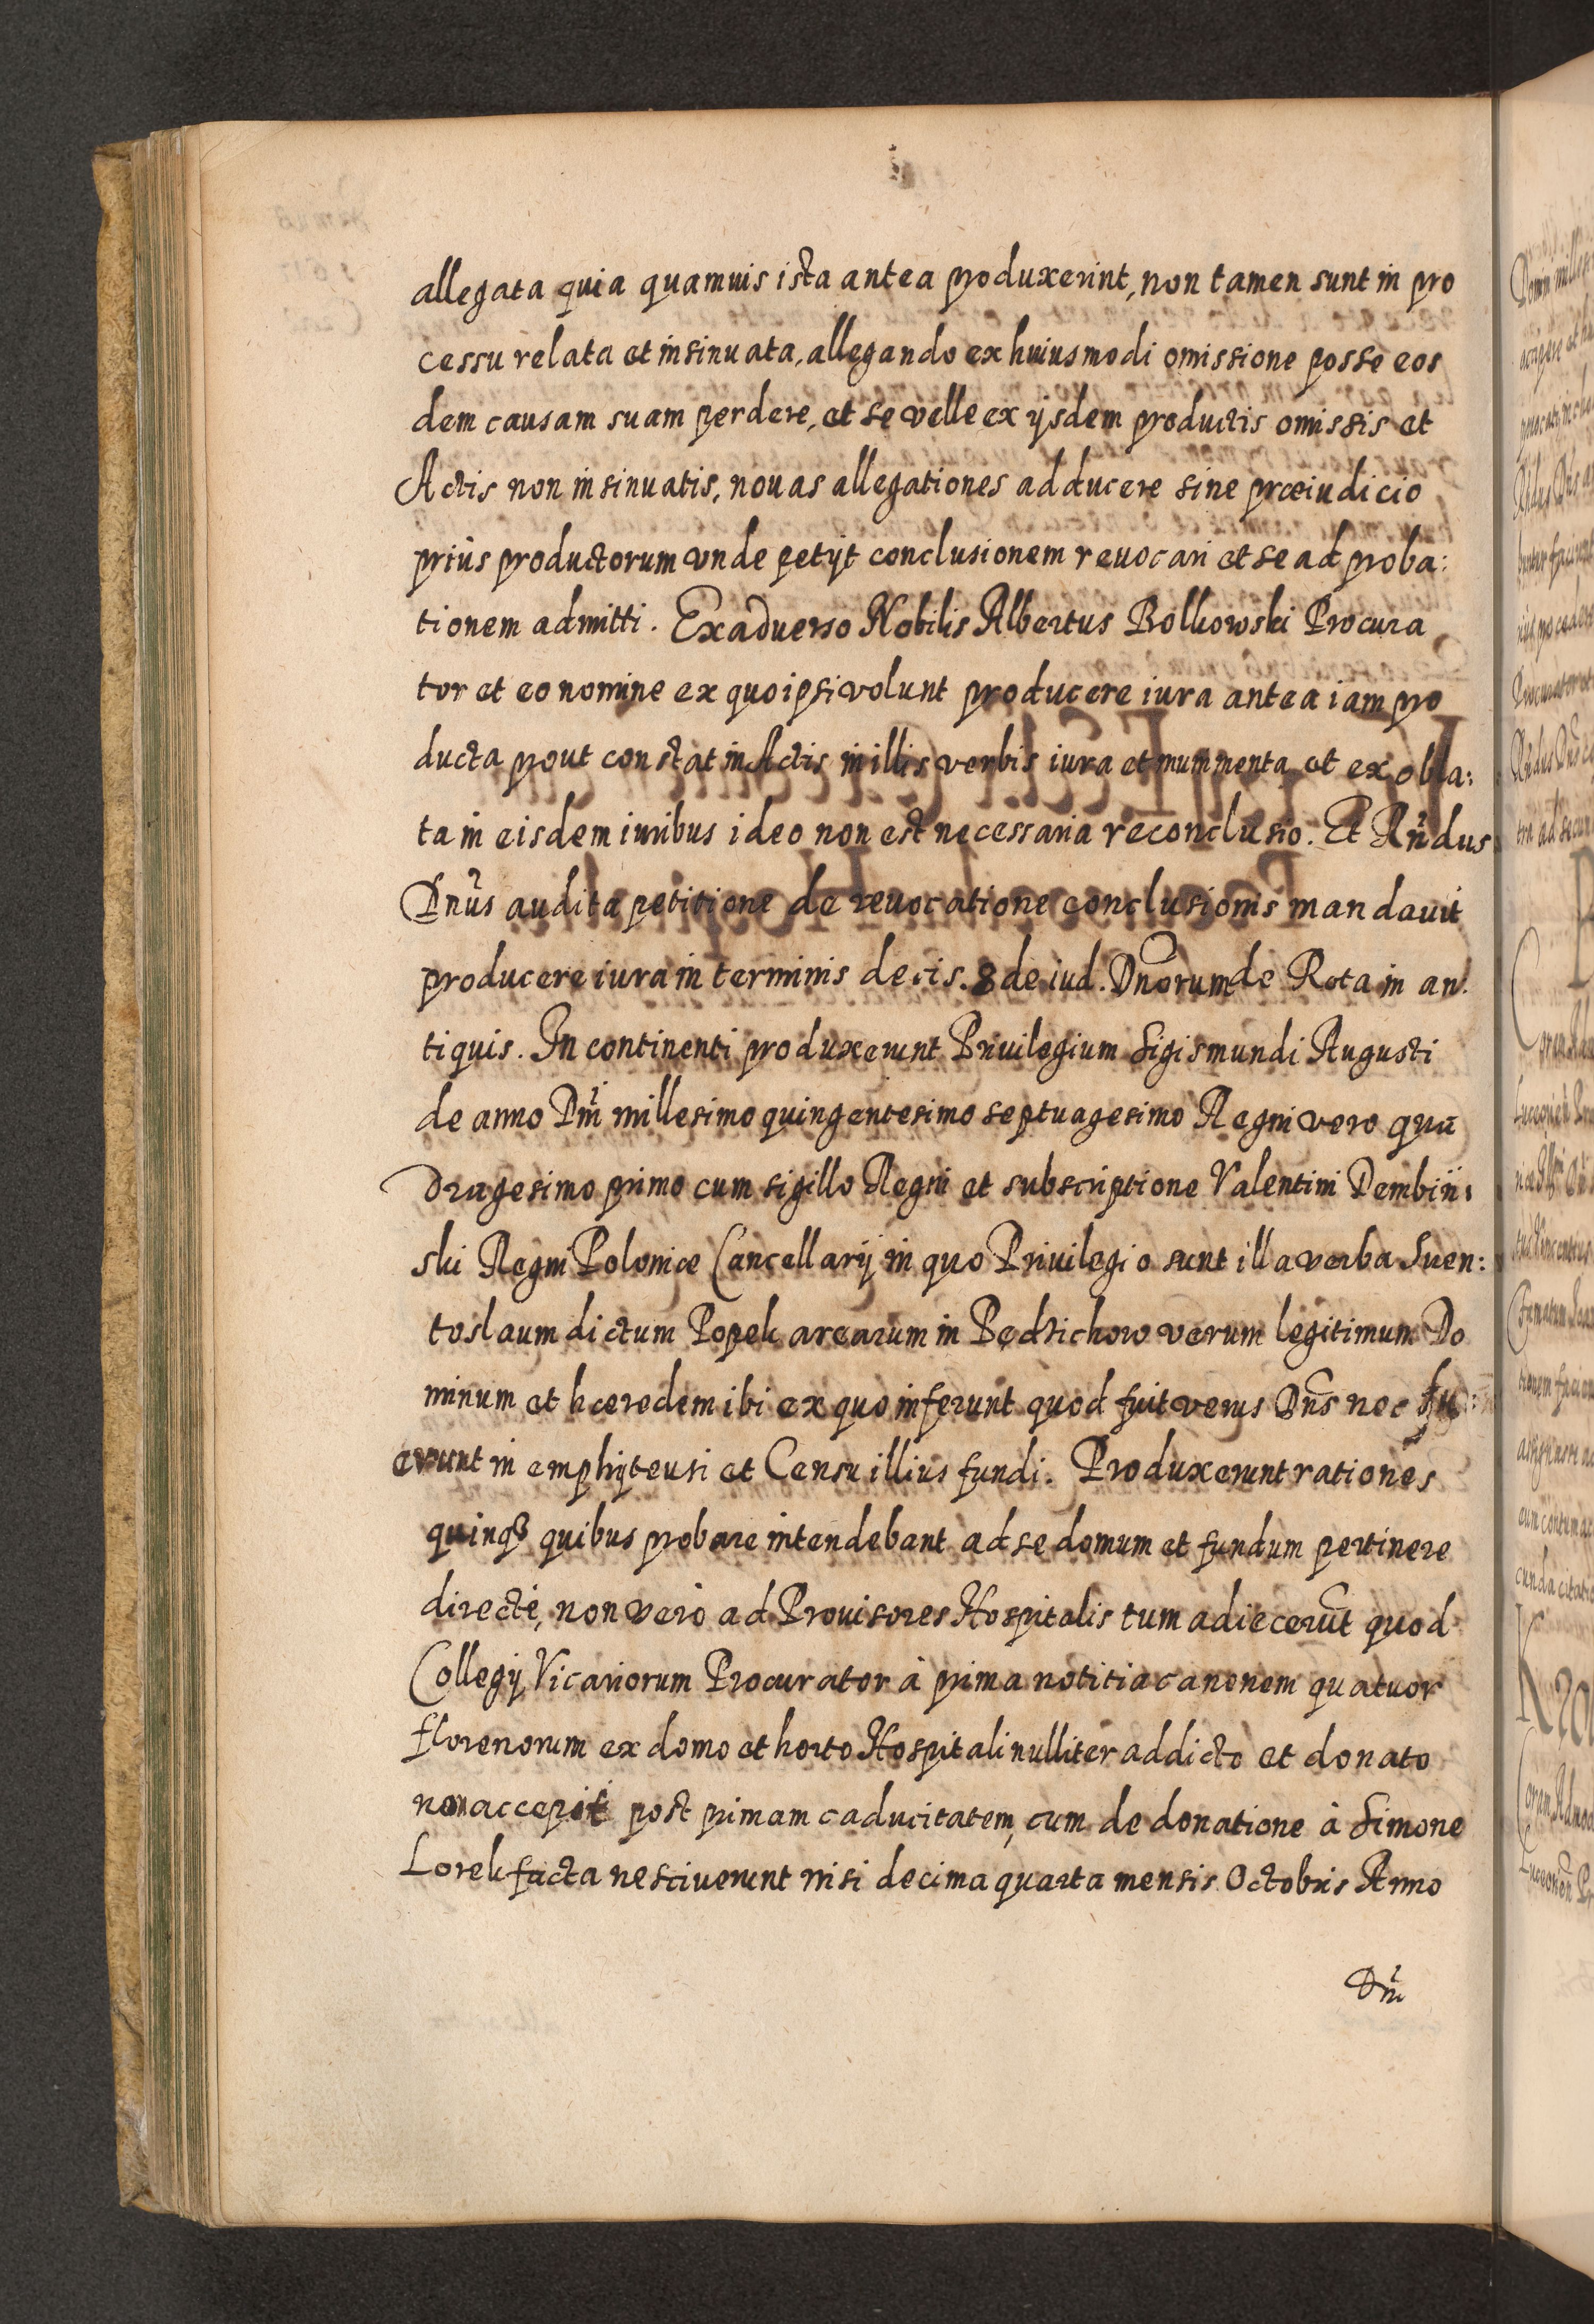 allegata quia quamuis ista antea produxerint, non tamen sunt in pro
cessu relata et insinuata, allegando ex huiusmodi omissione posse eos
dem causam suam perdere, et se velle ex ijsdem productis omissis et
Actis non insinuatis, nouas allegationes adducere sine præiudicio
priùs productorum vnde petijt conclusionem reuocari et se ad proba:
tionem admitti. Exaduerso Nobilis Albertus Bolkowski Procura
tor et eo nomine ex quo ipsi volunt producere iura antea iam pro
ducta prout constat in Actis in illis verbis iura et munimenta et ex obla:
ta in eisdem iuribus ideo non est necessaria reconclusio. Et Rñdus
Dnũs audita petitione de reuocatione conclusionis mandauit
producere iura in terminis decis. 8 de iud. Dnõrum de Rota in an.
tiquis. In continenti produxerunt Priuilegium Sigismundi Augusti
de anno Dñi millesimo quingentesimo septuagesimo Regni vero qua
dragesimo primo cum sigillo Regni et subscriptione Valentini Dembiń:
ski Regni Poloniæ Cancellarij in quo Priuilegio sunt illa verba Suen:
toslaum dictum Popek arearum in Będsichow verum legitimum Do
minum et hæredem ibi ex quo inferunt quod fuit verus Dñs nec fu:
erunt in emphyteusi et Censu illius fundi. Produxerunt rationes
quinqȝ quibus probare intendebant ad se domum et fundum pertinere
directè, non verò ad Prouisores Hospitalis tum adiecerũt quod
Collegij Vicariorum Procurator à prima notitia canonem quatuor
florenorum ex domo et horto Hospitali nulliter addicto et donato
non accepit post primam caducitatem, cum de donatione à Simone
Lorek facta nesciuerunt nisi decima quarta mensis Octobris Anno
Dñi